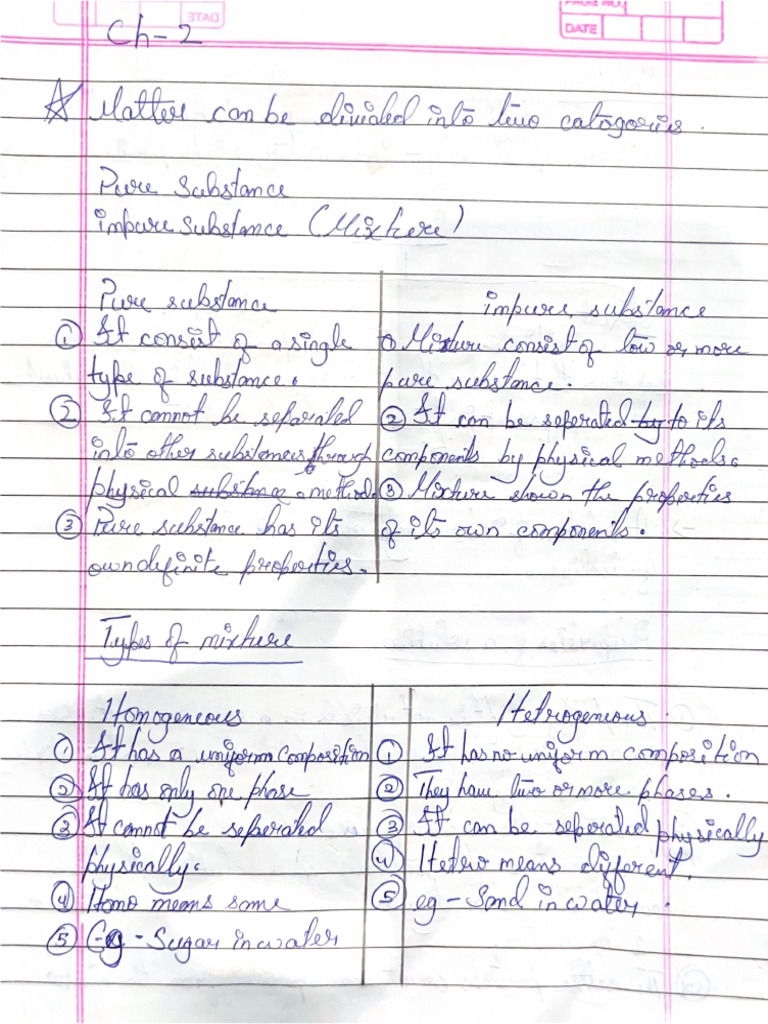 PAGE NO.
DATE
DATE
Ch-2
Matter can be divided into two catagories.
Pure Substance
impure substance (Mixture)
Pure substance
① It consist of a single
type of substance.
② It cannot be separated
into other substances through
physical substance method
③ Pure substance has its
own definite properties.
impure substance
① Mixture consist of two or more
pure substance.
② It can be seperated by to its
components by physical methods.
③ Mixture shown the properties
of its own components.
Types of mixture
Homogeneous
① It has a uniform composition
② It has only one phase
③ It cannot be seperated
physically.
④ Homo means same
⑤ Eg - Sugar in water
Hetrogeneous.
① It has no uniform composition
② They have two or more phases.
③ It can be seperated physically
④ Hetro means different.
⑤ eg - Sand in water.